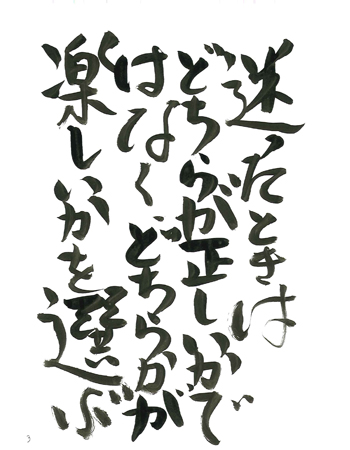 迷ったときは
どちらが正しいかで
はなく どちらかが
楽しいかを選ぶ